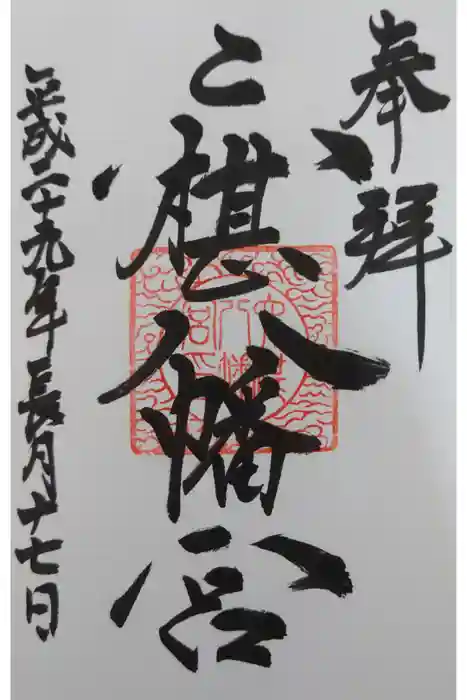 奉拝
二棋八幡宮
平成二十九年長月十七日